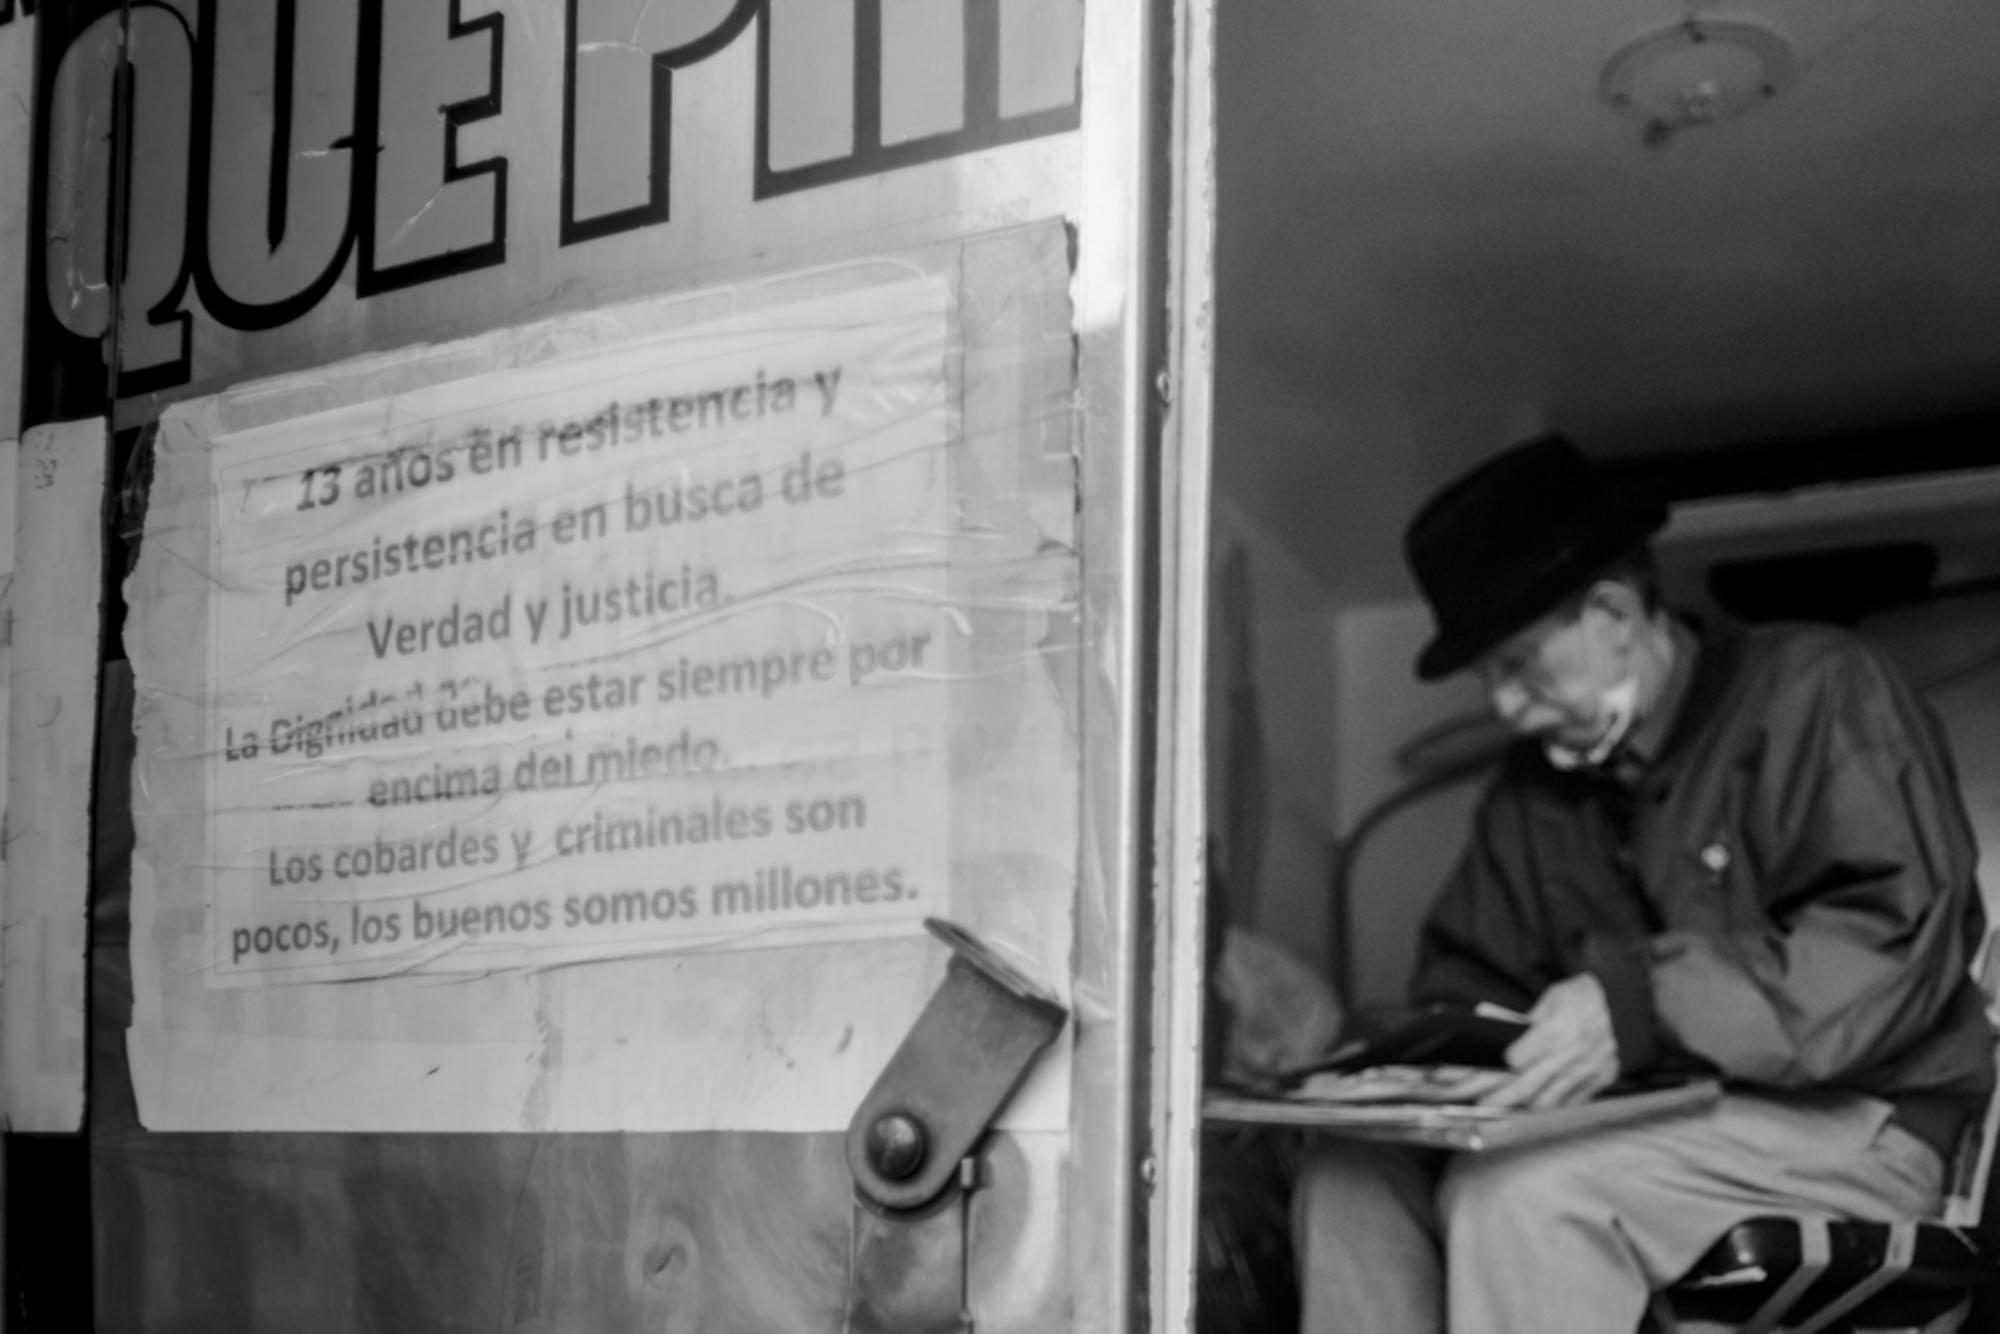 QUE
13 años en resistencia y
persistencia en busca de
Verdad y justicia.
La Dignidad debe estar siempre por
encima del miedo.
Los cobardes y criminales son
pocos, los buenos somos millones.